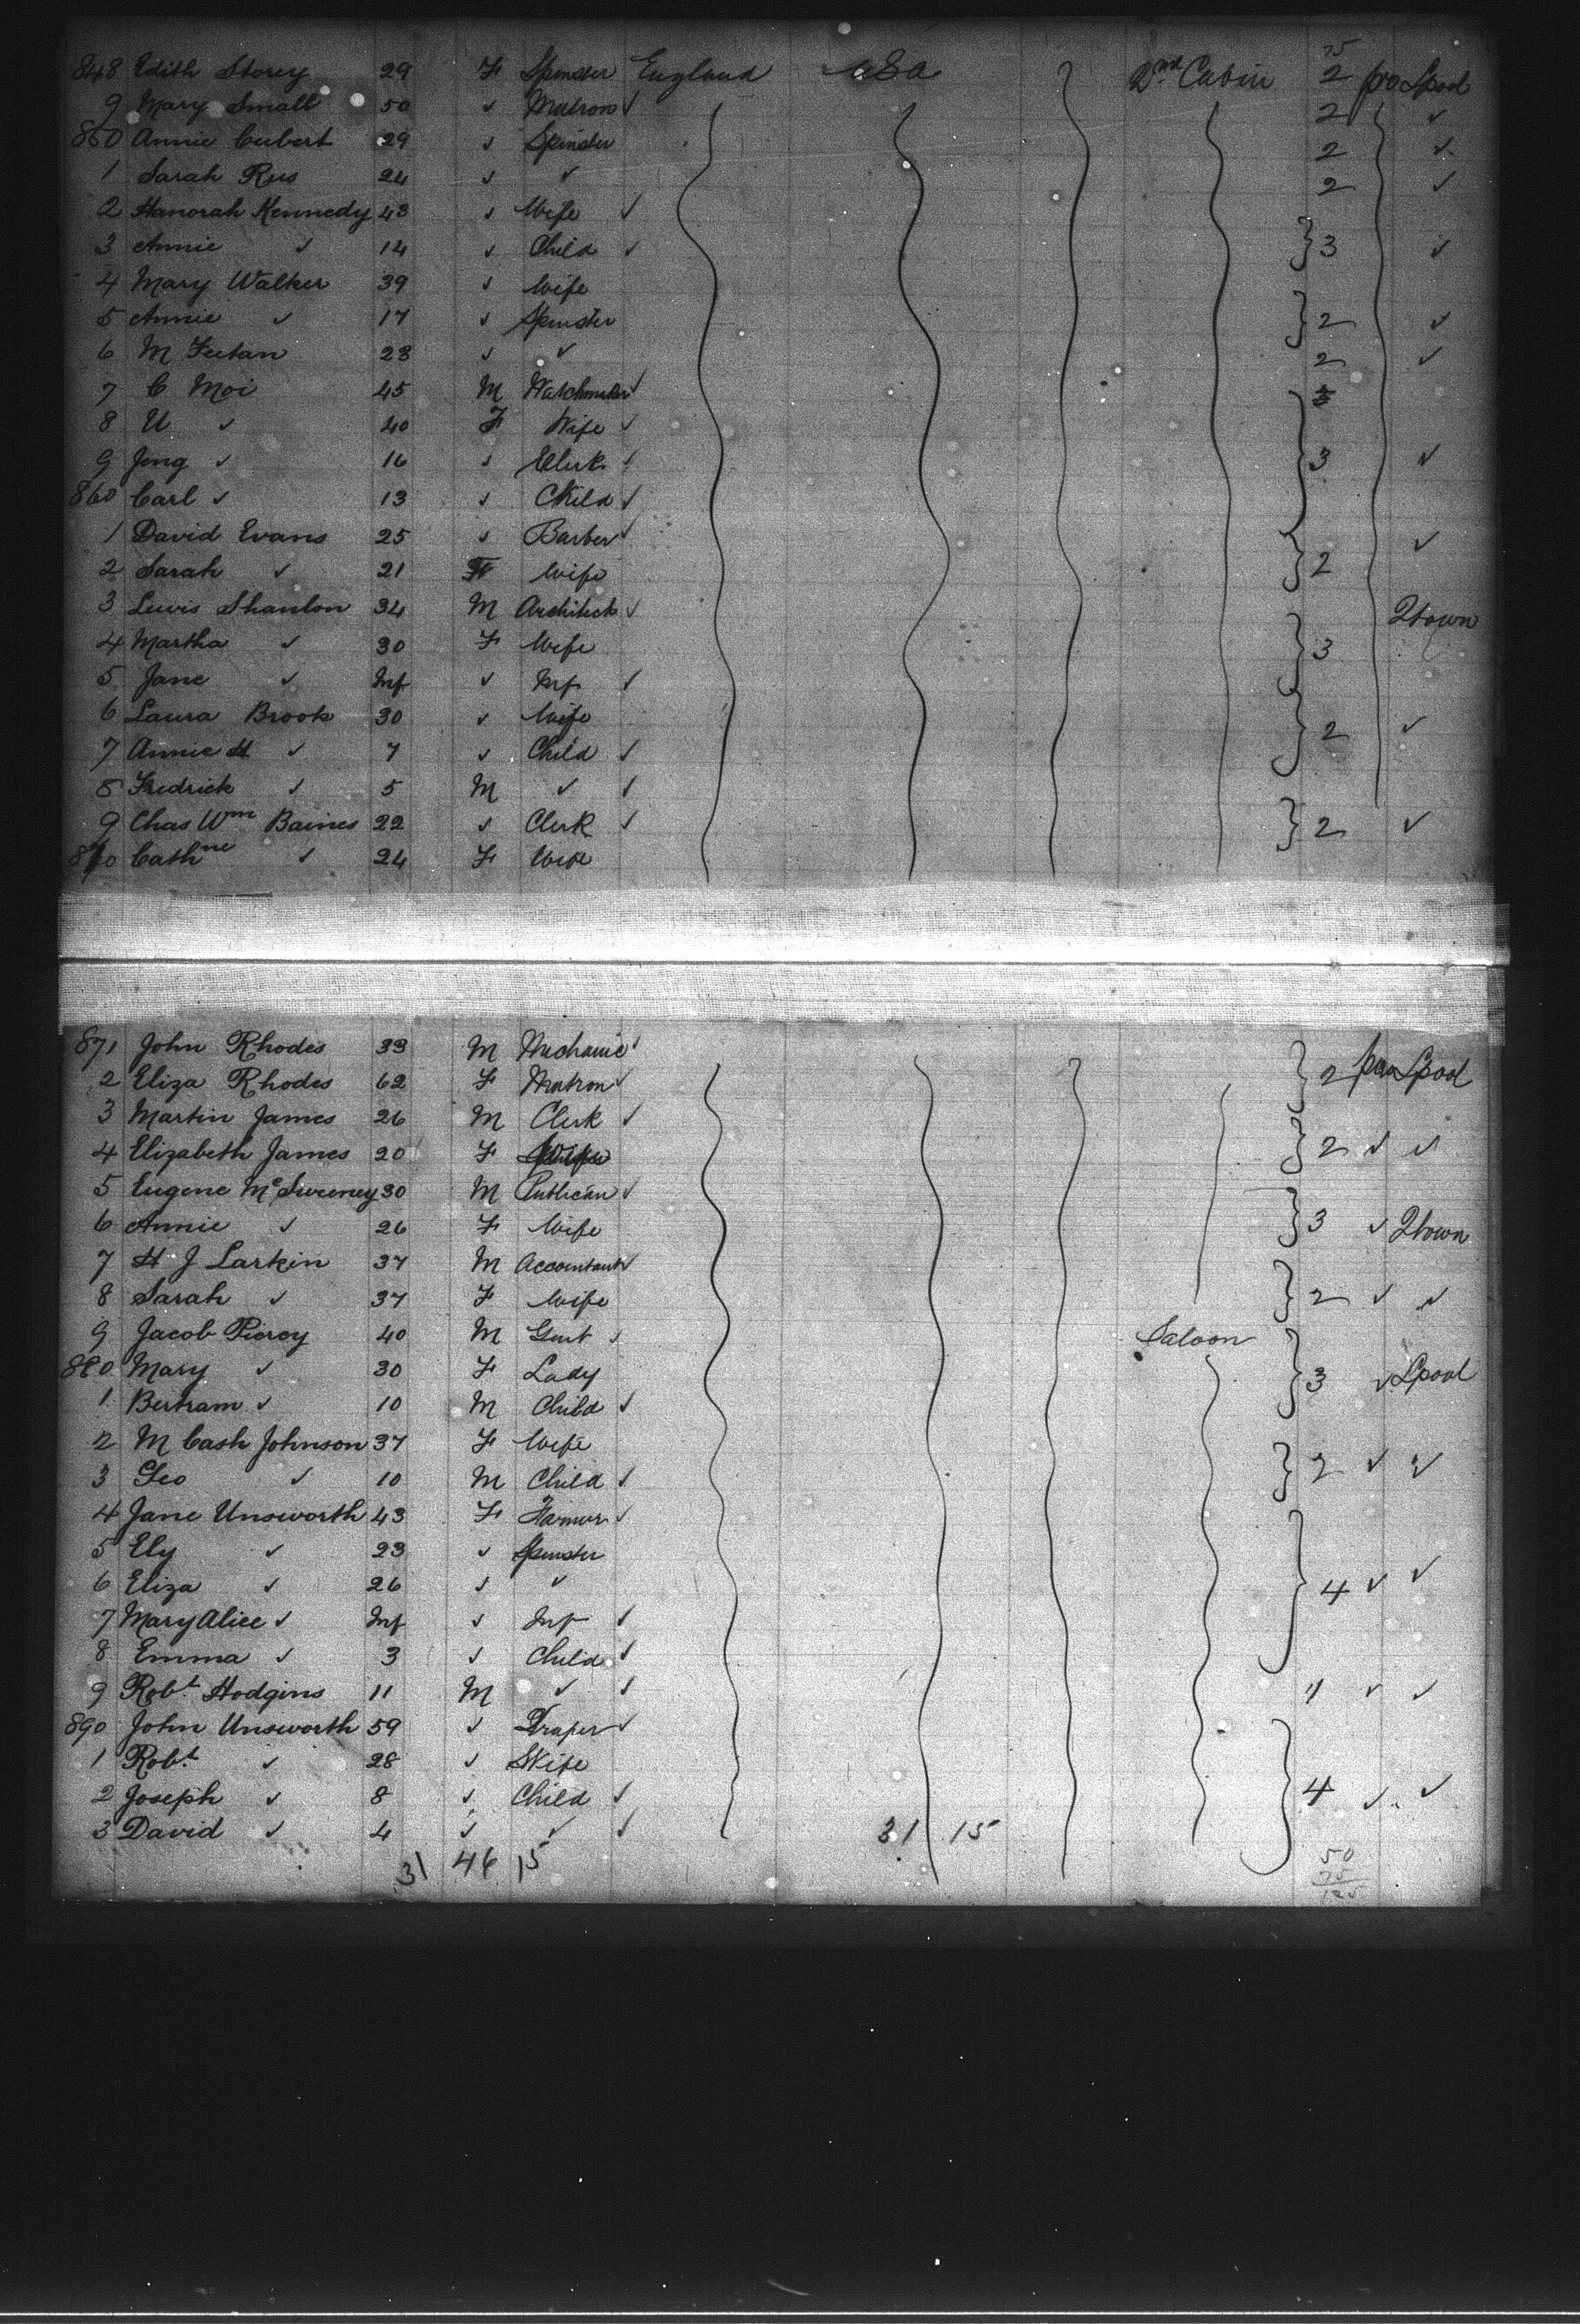 75
848 Edith Storey 29 F Spinster England USA 2nd Cabin 2 pro Lpool
9 Mary Small 50 ✓ Matron ✓ 2 ✓
850 Annie Cubert 29 ✓ Spinster 2 ✓
1 Sarah Rus 24 ✓ ✓ 2 ✓
2 Hanorah Kennedy 43 ✓ Wife ✓
3 Annie ✓ 14 ✓ Child ✓ 3 ✓
4 Mary Walker 39 ✓ Wife
5 Annie ✓ 17 ✓ Spinster 2 ✓
6 M 28 ✓ ✓ 2 ✓
7 C Moi 45 M Watchmaker ✓
8 U ✓ 40 F Wife ✓
9 Jeng ✓ 16 ✓ Clerk ✓ 3 ✓
860 Carl ✓ 13 ✓ Child ✓
1 David Evans 25 ✓ Barber ✓ ✓
2 Sarah ✓ 21 F Wife 2
3 Lewis Shanlon 34 M Architect ✓ Qtown
4 Martha ✓ 30 F Wife 3
5 Jane ✓ Inf ✓ Inf ✓
6 Laura Brook 30 ✓ Wife 2 ✓
7 Annie H ✓ 7 ✓ Child ✓
8 Fredrick ✓ 5 M ✓ ✓
9 Chas Wm Baines 22 ✓ Clerk ✓ 2 ✓
870 Cathne ✓ 24 F Wife
871 John Rhodes 33 M Mechanic ✓
2 Eliza Rhodes 62 F Matron ✓ 2 Lpool
3 Martin James 26 M Clerk ✓
4 Elizabeth James 20 F Wife 2 ✓ ✓
5 Eugene McSweeney 30 M Publican ✓
6 Annie ✓ 26 F Wife 3 ✓ Qtown
7 H J Larkin 37 M Accountant ✓
8 Sarah ✓ 37 F Wife 2 ✓ ✓
9 Jacob Piercy 40 M Gent ✓ Saloon
880 Mary ✓ 30 F Lady 3 ✓ Lpool
1 Bertram ✓ 10 M Child ✓
2 M Cash Johnson 37 F Wife
3 Geo ✓ 10 M Child ✓ 2 ✓ ✓
4 Jane Unsworth 43 F Farmer ✓
5 Ely ✓ 23 ✓ Spinster
6 Eliza ✓ 26 ✓ ✓ 4 ✓ ✓
7 Mary Alice ✓ Inf ✓ Inf ✓
8 Emma ✓ 3 ✓ Child ✓
9 Robt Hodgins 11 M ✓ ✓ " ✓ ✓
890 John Unsworth 59 ✓ Draper ✓
1 Robt ✓ 28 ✓ Wife
2 Joseph ✓ 8 ✓ Child ✓ 4 ✓ ✓
3 David ✓ 4 ✓ ✓ ✓ 31 15
31 46 15 50
75
125